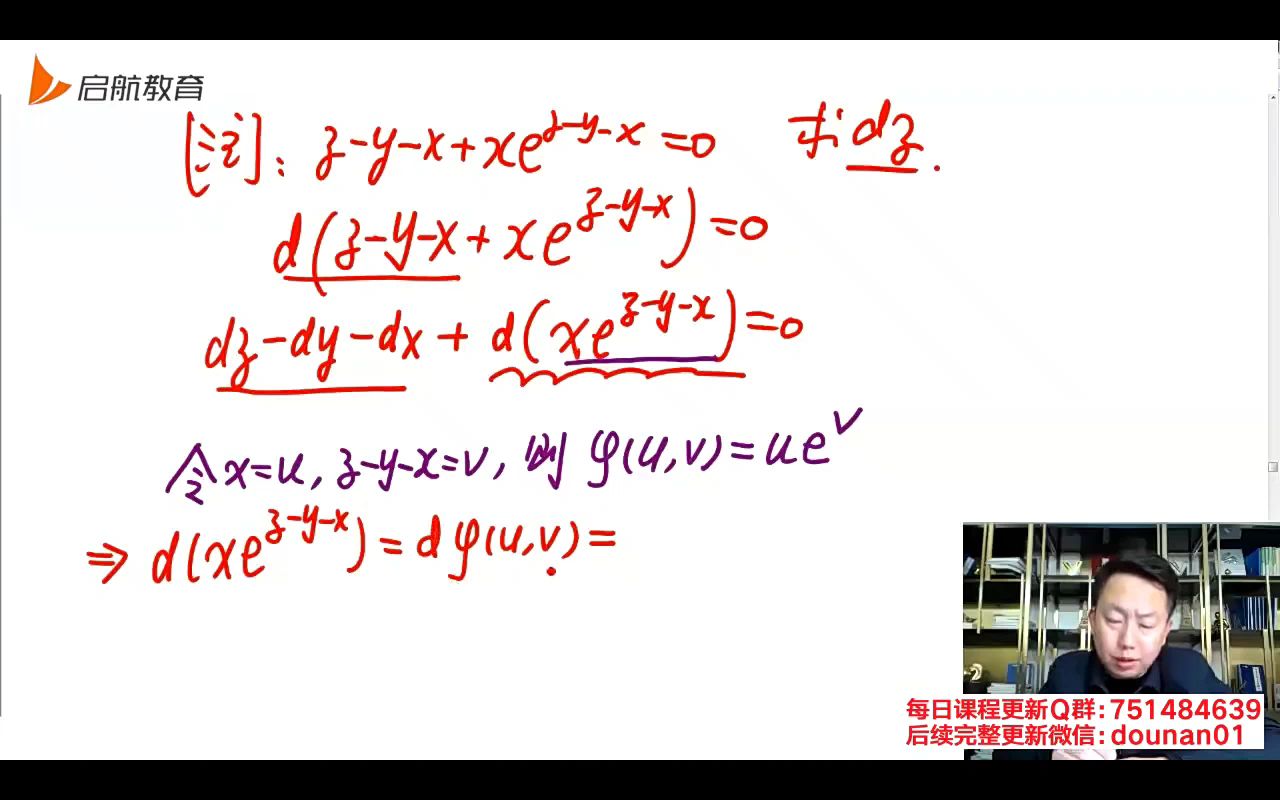 启航教育
[注]: z-y-x+xe^{z-y-x}=0 求dz.
d(z-y-x+xe^{z-y-x})=0
dz-dy-dx+d(xe^{z-y-x})=0
令x=u, z-y-x=v, 则φ(u,v)=ue^v
⇒ d(xe^{z-y-x})=dφ(u,v)=
每日课程更新Q群:751484639
后续完整更新微信:dounan01